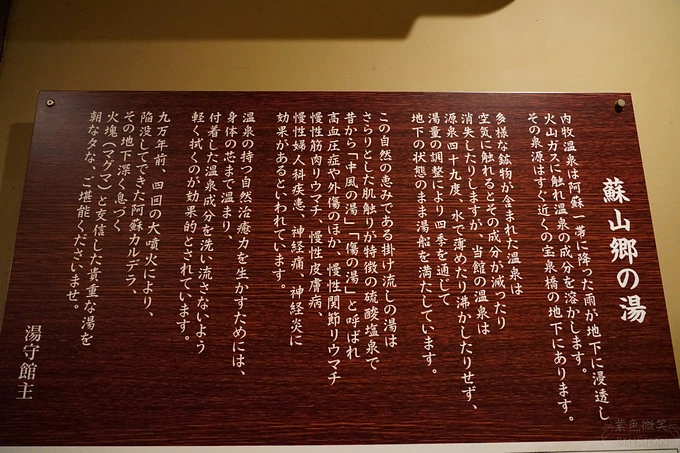 蘇山郷の湯
内牧温泉は阿蘇一帯に降った雨が地下に浸透し
火山ガスに触れ温泉の成分を溶かします。
その泉源はすぐ近くの宝泉橋の地下にあります。
多様な鉱物が含まれた温泉は
空気に触れるとその成分が減ったり
消失したりしますが、当館の温泉は
源泉四十九度、水で薄めたり沸かしたりせず、
湯量の調整により四季を通じて
地下の状態のまま湯船を満たしています。
この自然の恵みである掛け流しの湯は
さらりとした肌触りが特徴の硫酸塩泉で
昔から「中風の湯」「傷の湯」と呼ばれ
高血圧症や外傷のほか、慢性関節リウマチ
慢性筋肉リウマチ、慢性皮膚病、
慢性婦人科疾患、神経痛、神経炎に
効果があるといわれています。
温泉の持つ自然治癒力を生かすためには、
身体の芯まで温まり、
付着した温泉成分を洗い流さないよう
軽く拭くのが効果的とされています。
九万年前、四回の大噴火により、
陥没してできた阿蘇カルデラ、
その地下深く息づく
火塊(マグマ)と交信した貴重な湯を
朝な夕な、ご堪能くださいませ。
湯守館主
紫色微笑